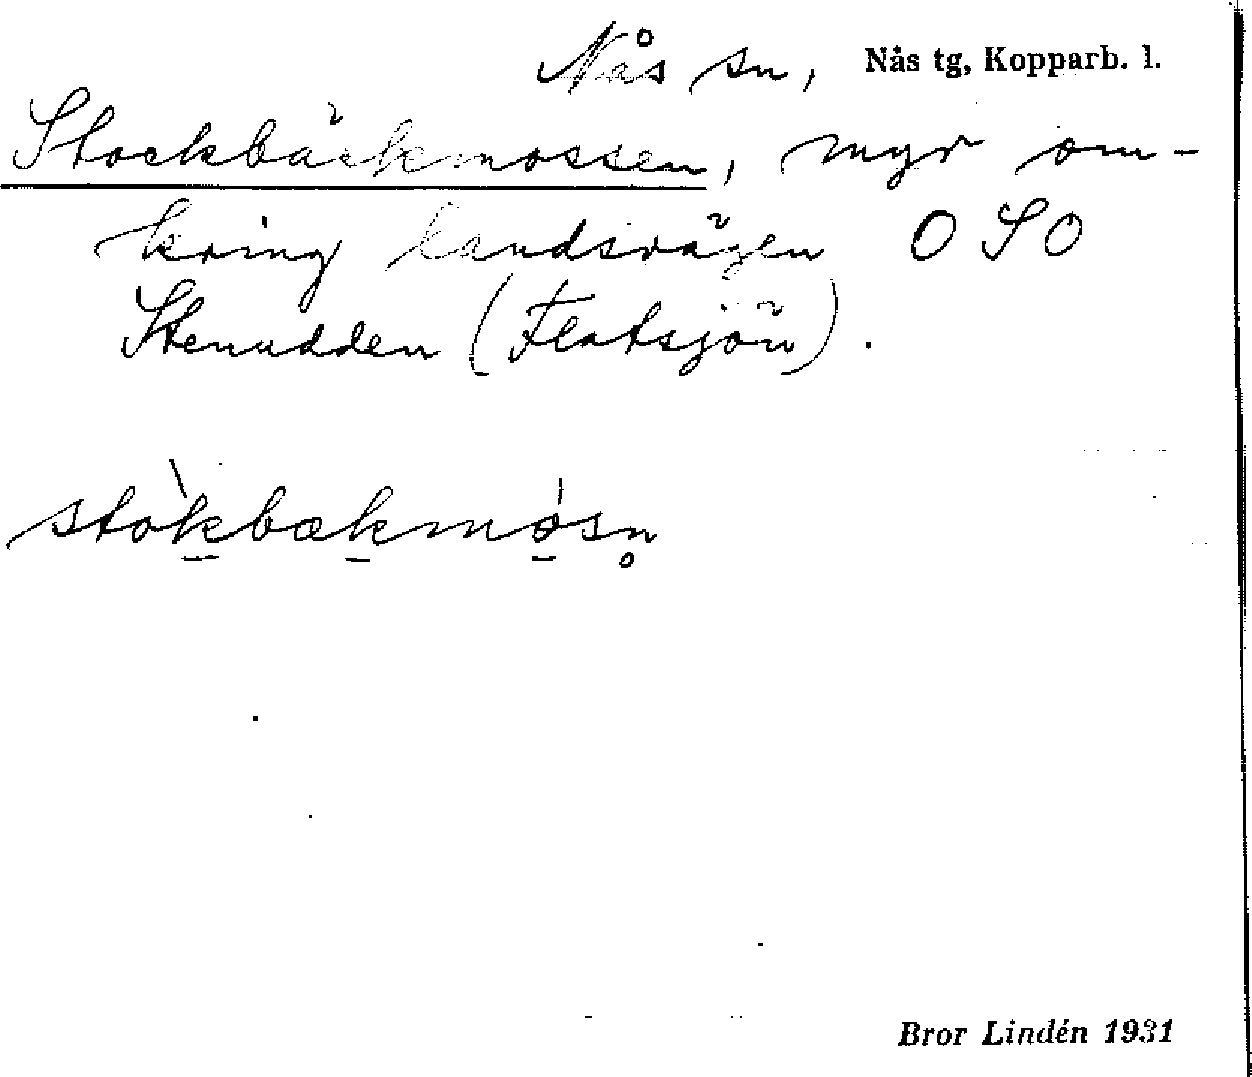 Nås sn, Nås tg, Kopparb. l.
Stockbäckmossen, myr om-
kring landsvägen OSO
Stenudden (Flatsjön).
stòkbækmósn̥
Bror Lindén 1931